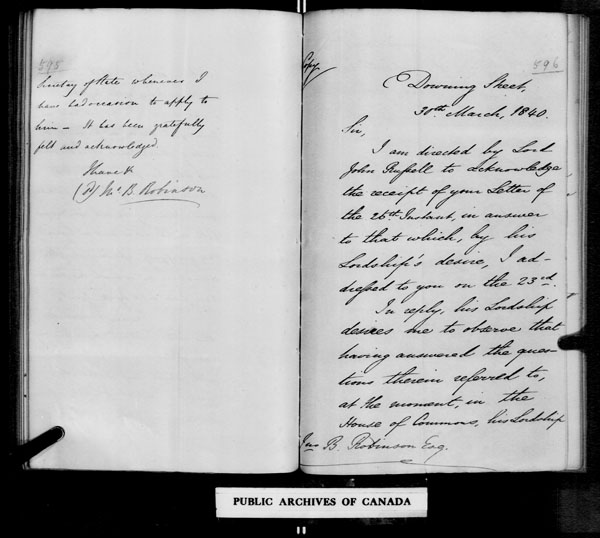 595
Secretary of State whenever I
have had occasion to apply to
him — It has been gratefully
felt and acknowledged.
I have &
(Sd) Jno B. Robinson
596
Copy
Downing Street,
30th March, 1840.
Sir,
I am directed by Lord
John Russell to acknowledge
the receipt of your Letter of
the 26th Instant, in answer
to that which, by his
Lordship's desire, I ad-
dressed to you on the 23rd.
In reply, his Lordship
desires me to observe that
having answered the ques-
tions therein referred to,
at the moment, in the
House of Commons, his Lordship
Jno B. Robinson Esq.
PUBLIC ARCHIVES OF CANADA